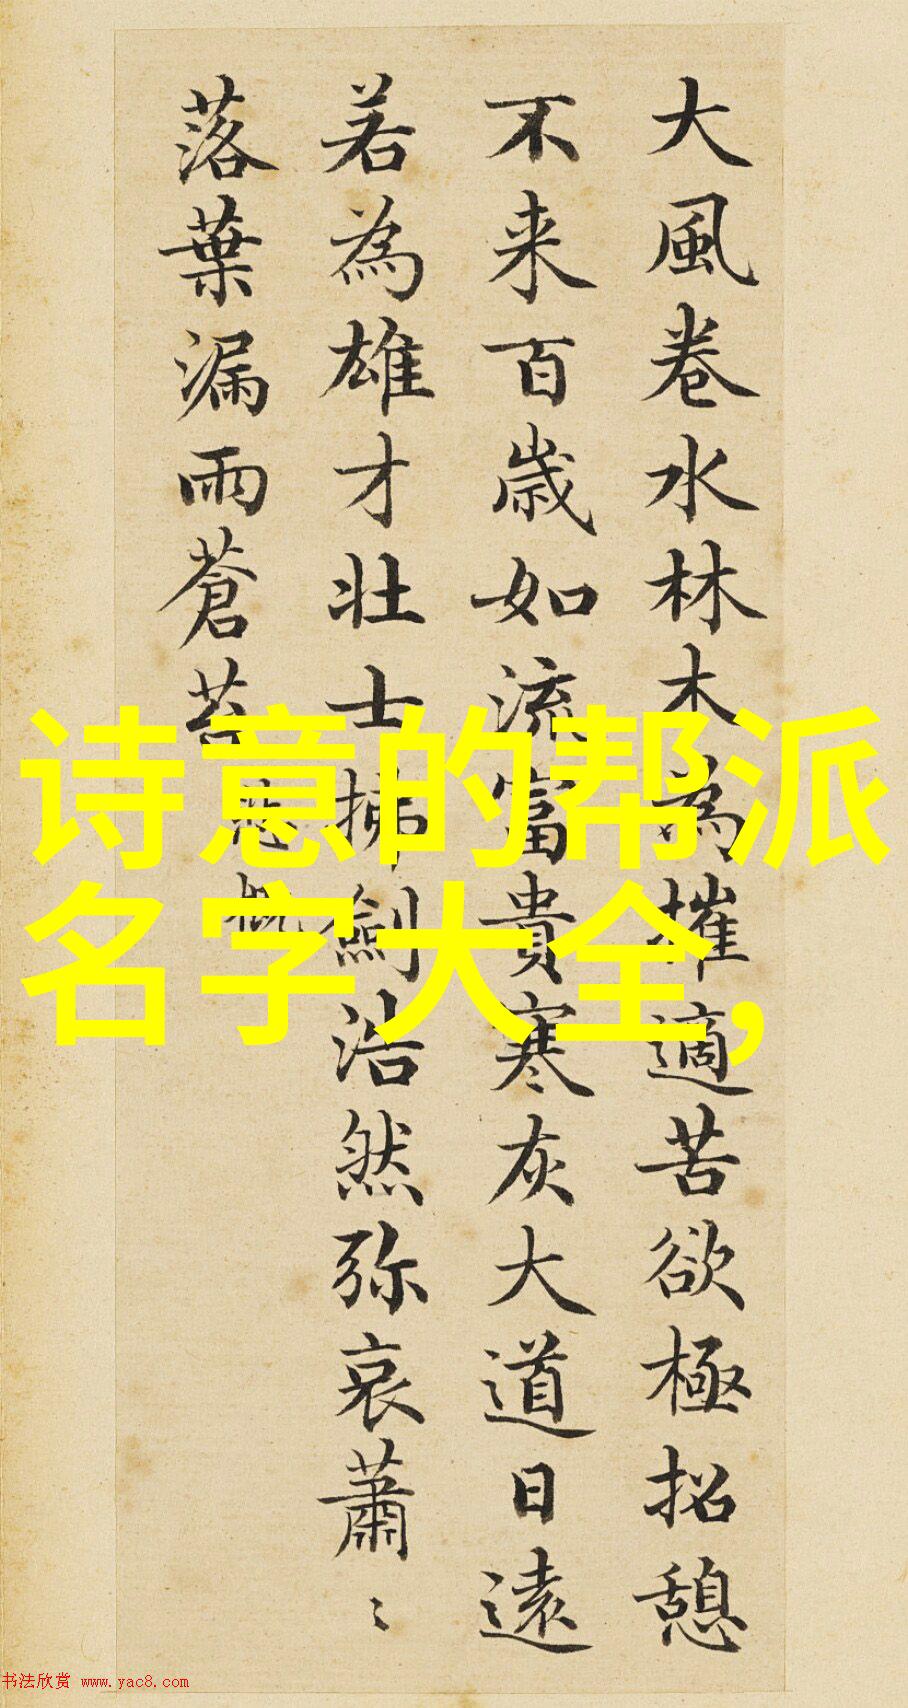 大風卷水林木為摧適苦欲極招憩
不来百歳如流富貴寒灰大道日遠
若為雄才壮士拂劍浩然弥哀蕭〻
落葉漏雨蒼苔
悲慨
诗意的帮派
名字大全,
书法欣赏 www.yac8.com